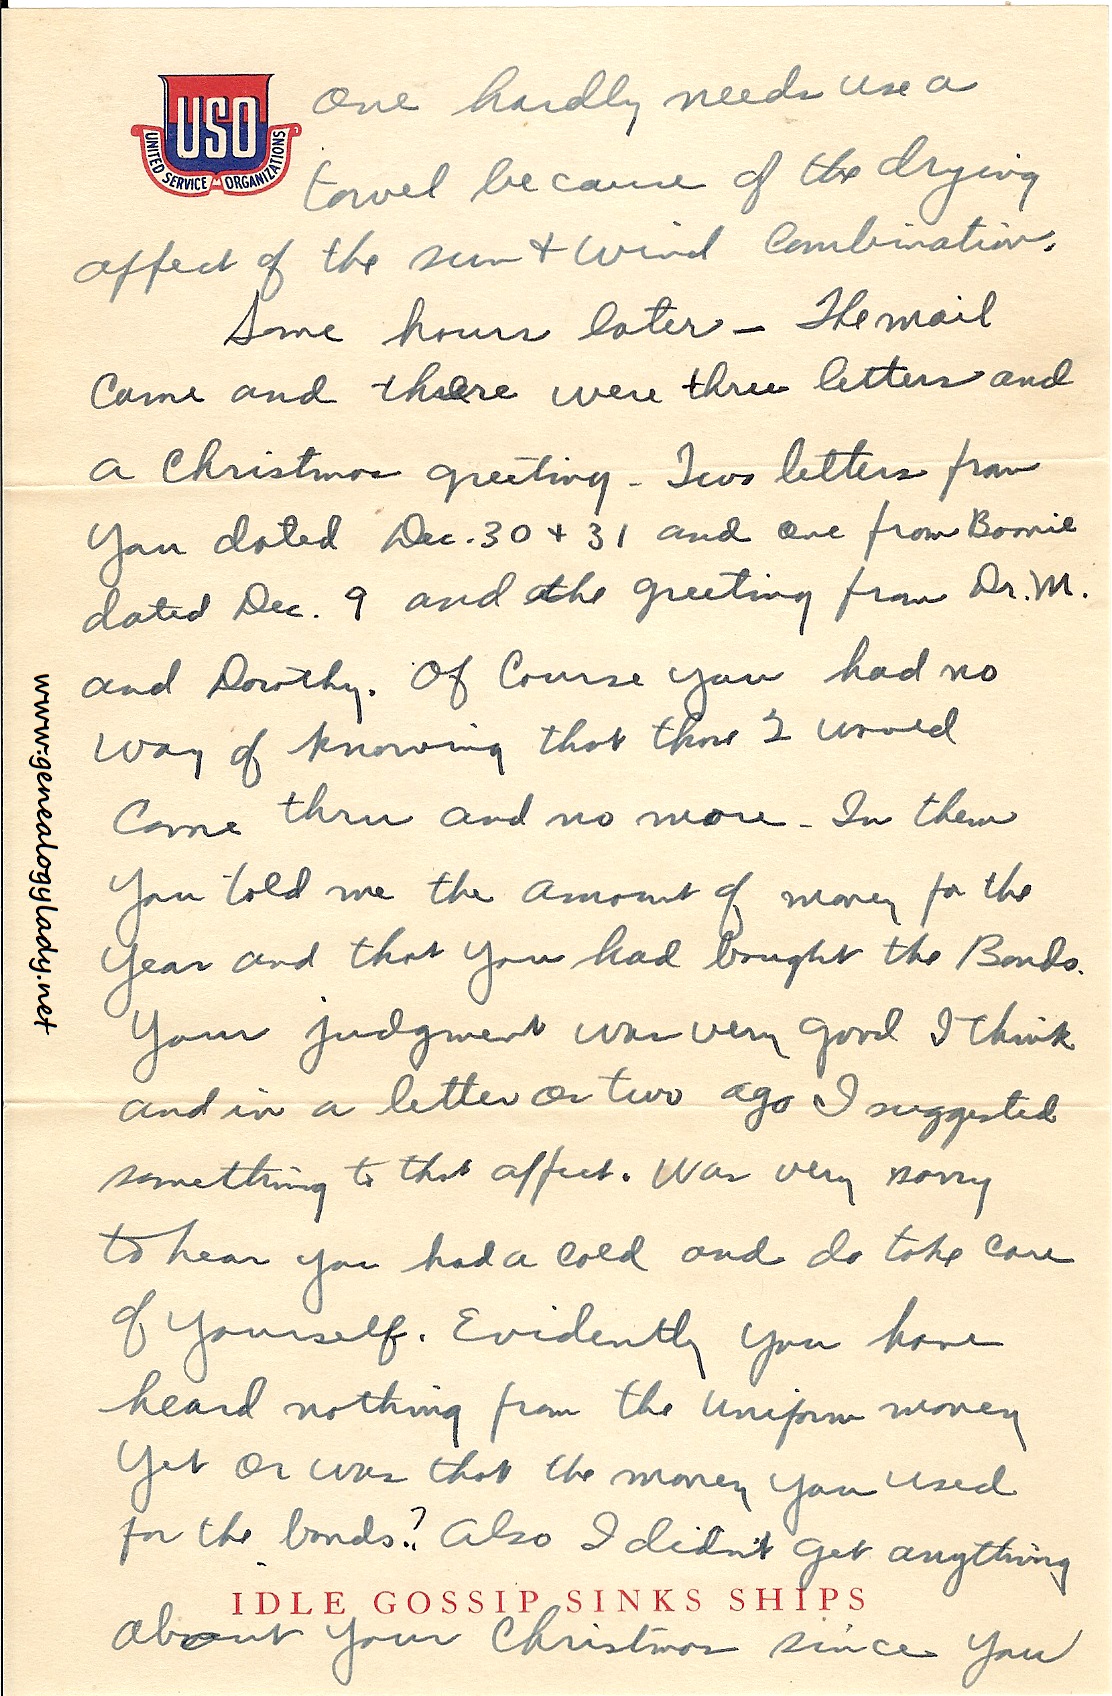 USO
UNITED SERVICE ORGANIZATIONS
One hardly needs use a
towel because of the drying
affect of the sun + wind combination.
Some hours later – The mail
came and there were three letters and
a Christmas greeting – Two letters from
you dated Dec. 30 + 31 and one from Bonnie
dated Dec. 9 and the greeting from Dr. M.
and Dorothy. Of course you had no
way of knowing that those 2 would
come thru and no more – In them
you told me the amount of money for the
year and that you had bought the Bonds.
Your judgment was very good I think
and in a letter or two ago I suggested
something to that affect. Was very sorry
to hear you had a cold and do take care
of yourself. Evidently you have
heard nothing from the uniform money
yet or was that the money you used
for the bonds? Also I didn't get anything
IDLE GOSSIP SINKS SHIPS
about your Christmas since you
www.genealogylady.net